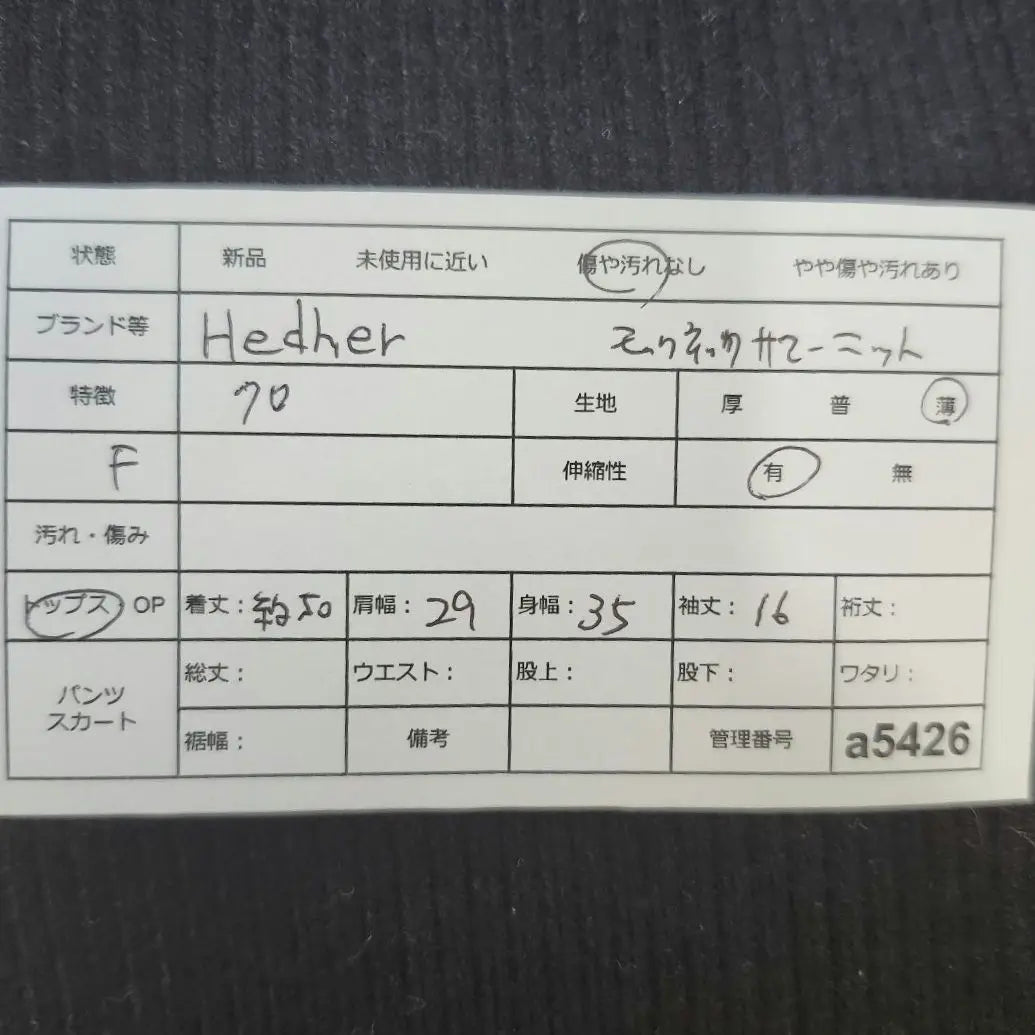 状態 新品 未使用に近い 傷や汚れなし やや傷や汚れあり
ブランド等 Hedher モックネックサマーニット
特徴 クロ 生地 厚 普 薄
F 伸縮性 有 無
汚れ・傷み
トップス OP 着丈：約50 肩幅：29 身幅：35 袖丈：16 裄丈：
パンツ スカート 総丈： ウエスト： 股上： 股下： ワタリ：
裾幅： 備考 管理番号 a5426